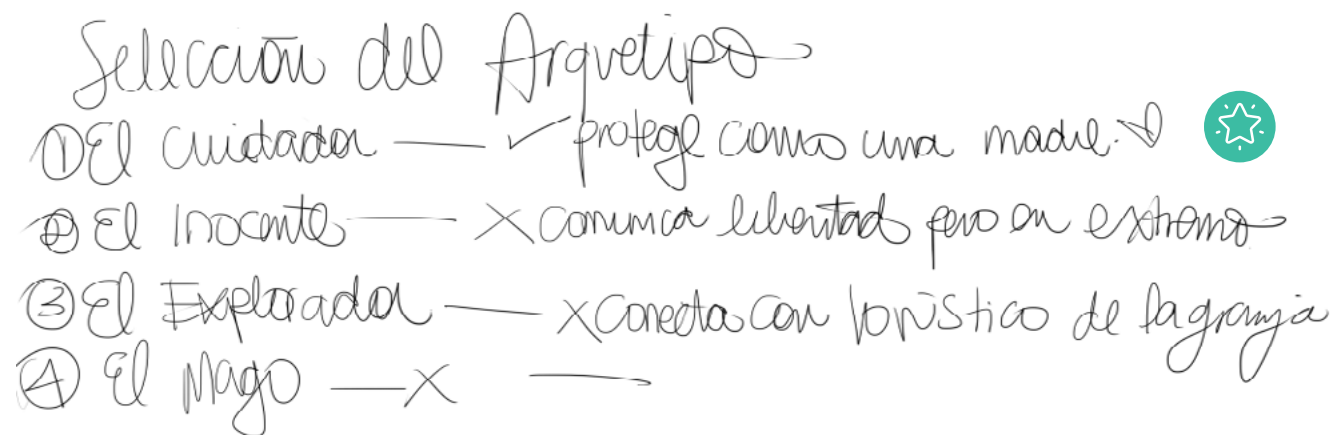 Selección del Arquetipo
① El Cuidador — ✓ protege como una madre. ♡
② El Inocente — X comunica libertad pero en extremo
③ El Explorador — X Conecta con lo rústico de la granja
④ El Mago — X —